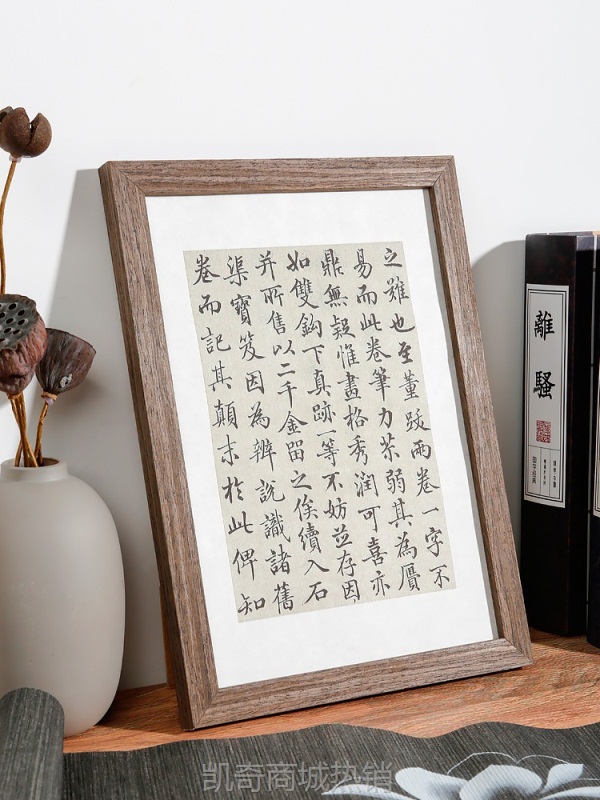 之難也至董跋兩卷一字不
易而此卷筆力苶弱其為贗
鼎無疑惟畫格秀潤可喜亦
如雙鈎下真跡一等不妨並存因
并所售以二千金留之俟續入石
渠寶笈因為辨說識諸舊
卷而記其顛末於此俾知
離騷
凯奇商城热销